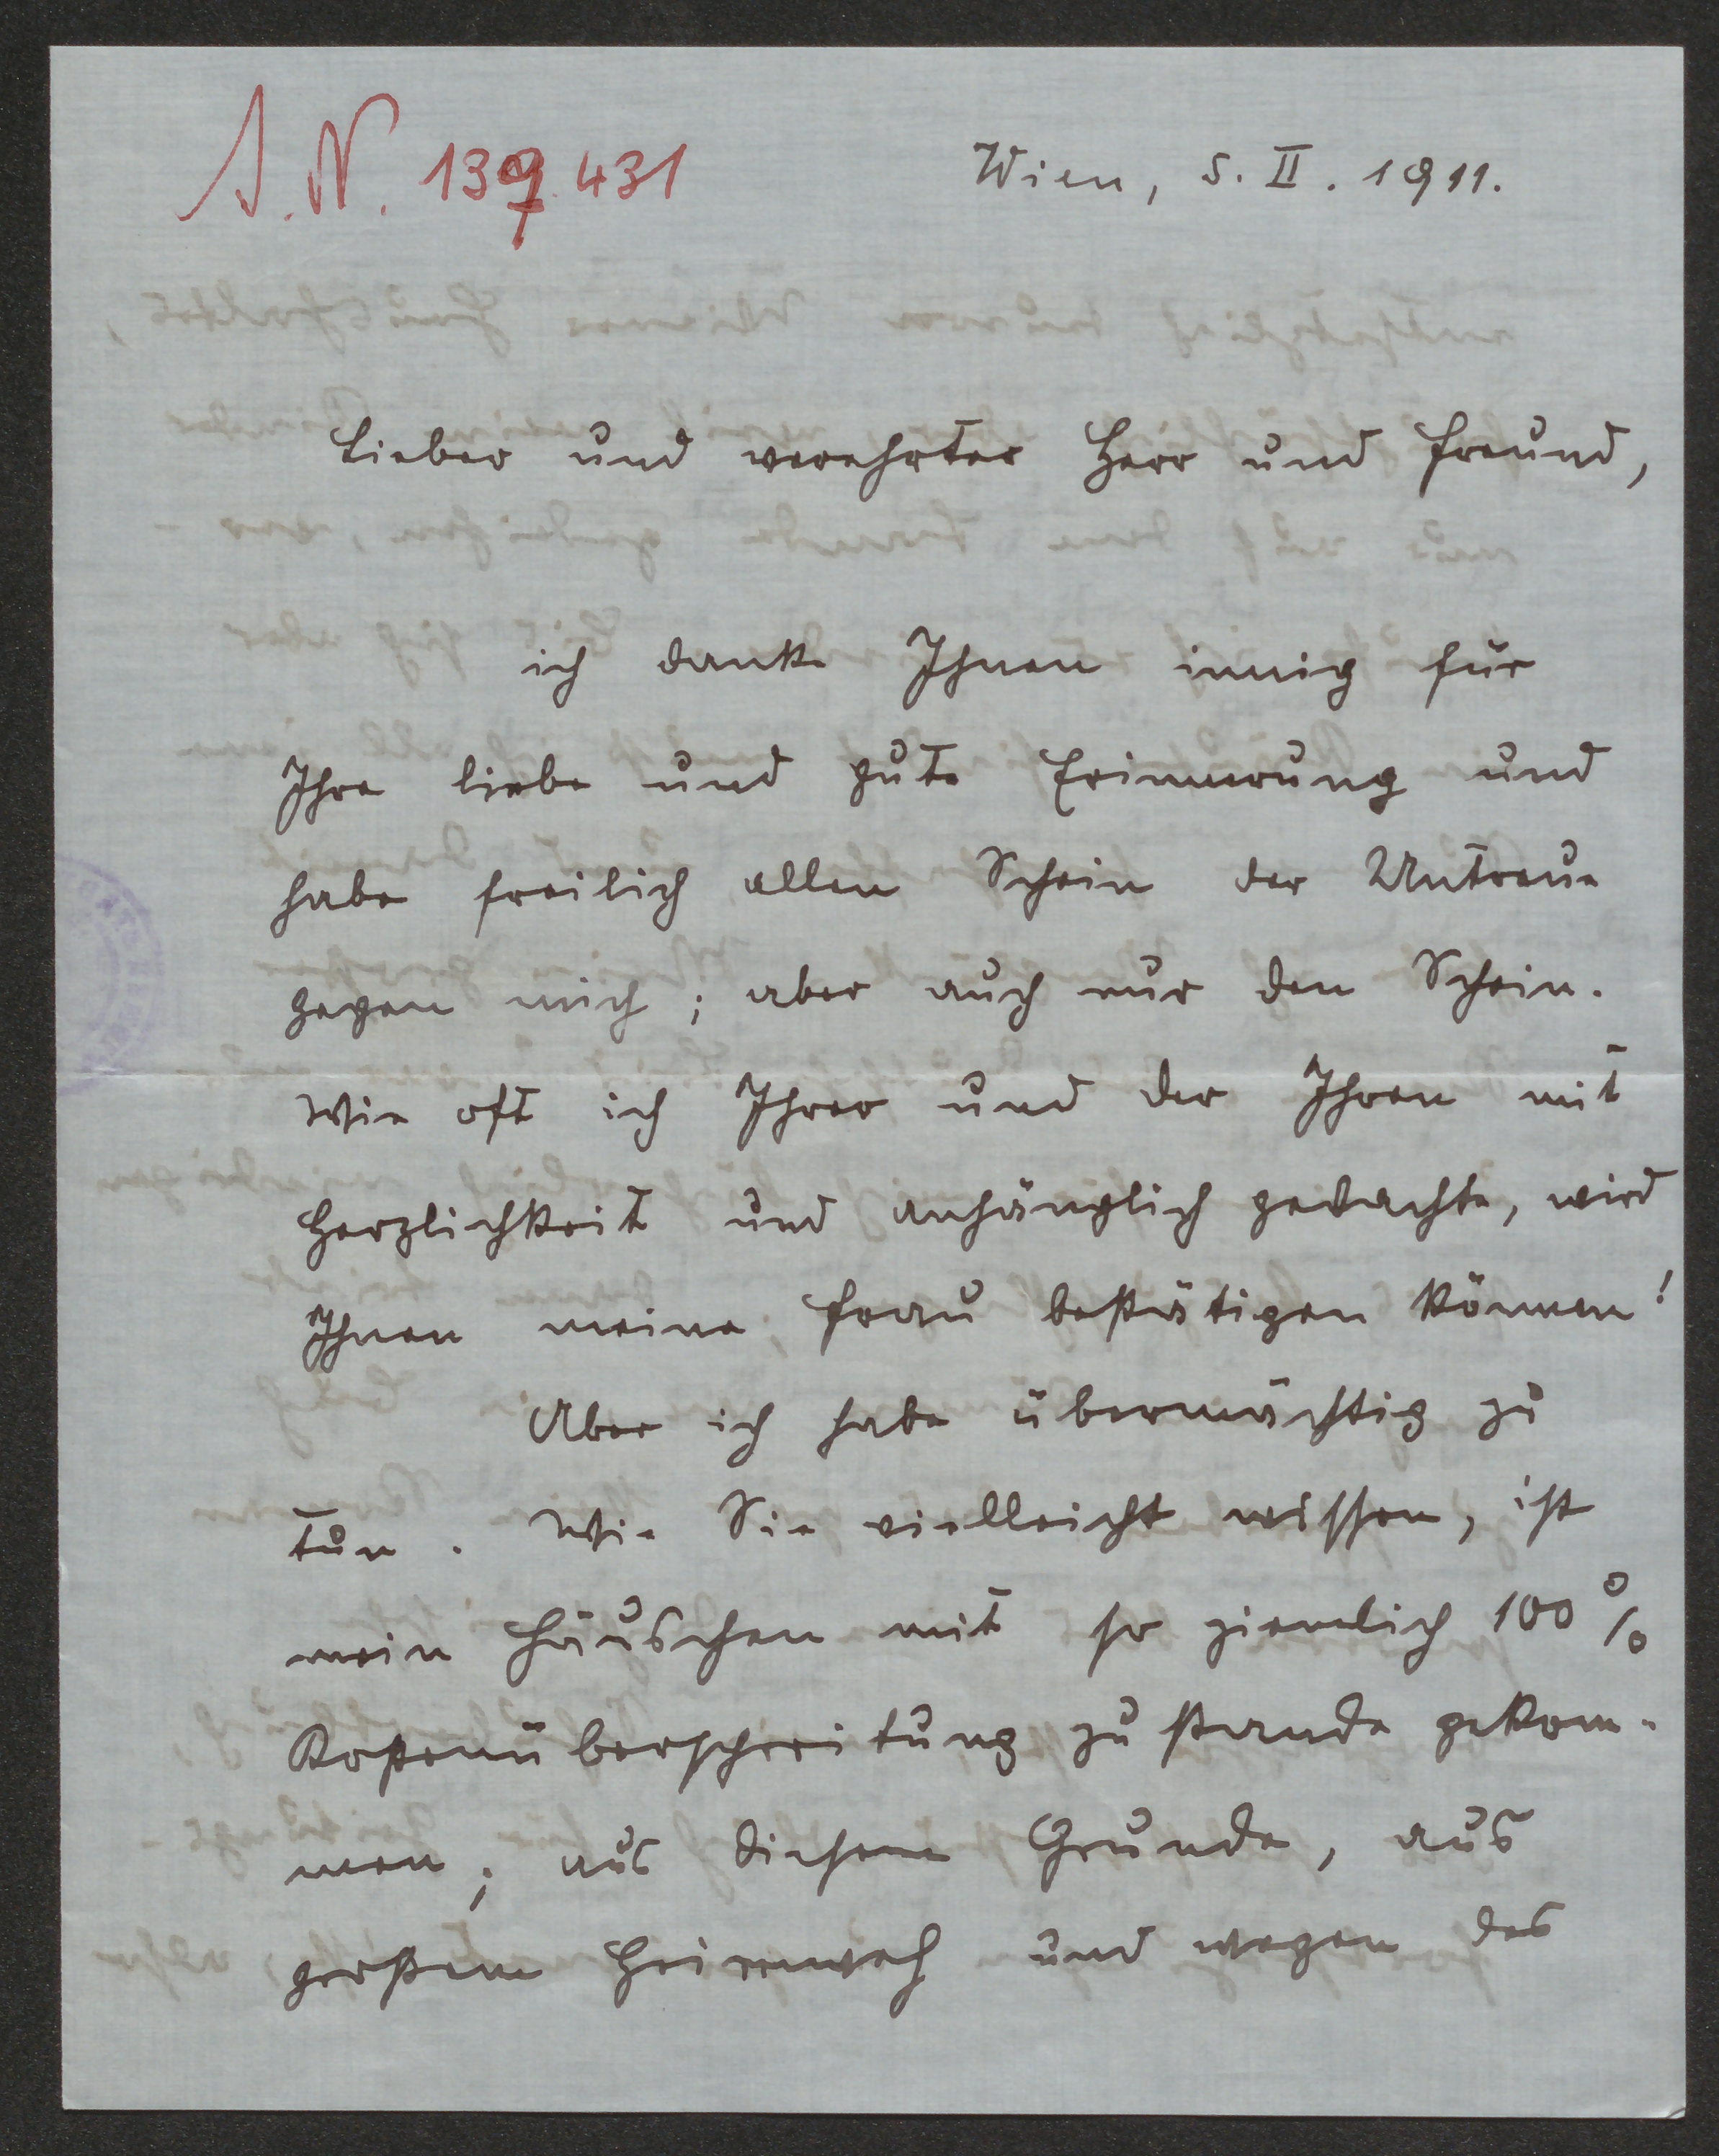 I.N. 139.431
Wien, 5. II. 1911.
Lieber und verehrter Herr und Freund,
ich danke Ihnen innig für
Ihre liebe und gute Erinnerung und
habe freilich allen Schein der Untreue
gegen mich; aber auch nur den Schein.
Wie oft ich Ihrer und der Ihren mit
Herzlichkeit und anhänglich gedachte, wird
Ihnen meine Frau bestätigen können!
Aber ich habe übermächtig zu
tun. Wie Sie vielleicht wissen, ist
mein Häuschen mit so ziemlich 100%
Kostenüberschreitung zu stande gekom-
men; aus diesem Grunde, aus
großem Heimweh und wegen des